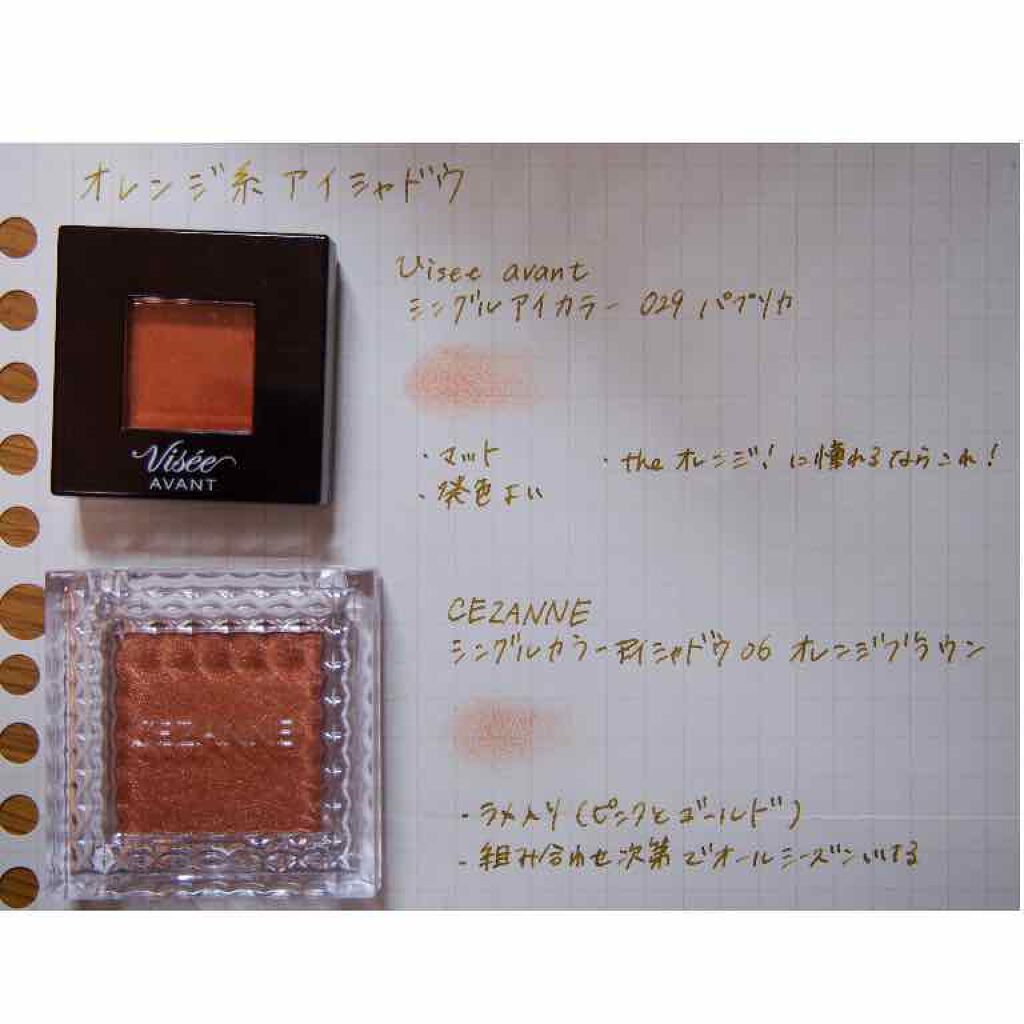 オレンジ系アイシャドウ
Visee avant
シングルアイカラー 029 パプリカ
Visée
AVANT
・マット
・発色よい
・the オレンジ!に憧れるならこれ!
CEZANNE
シングルカラーアイシャドウ 06 オレンジブラウン
・ラメ入り(ピンクとゴールド)
・組み合わせ次第でオールシーズンいける